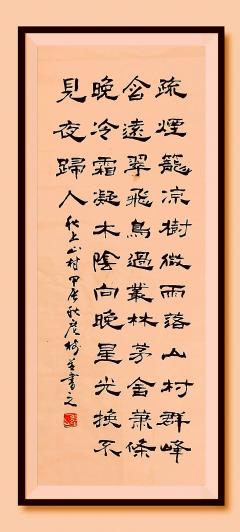 疏煙籠涼樹微雨落山村群峰
含遠翠飛鳥過叢林茅舍蕭條
晚冷霜凝木陰向晚星光換不
見夜歸人 秋上山村甲辰秋書之